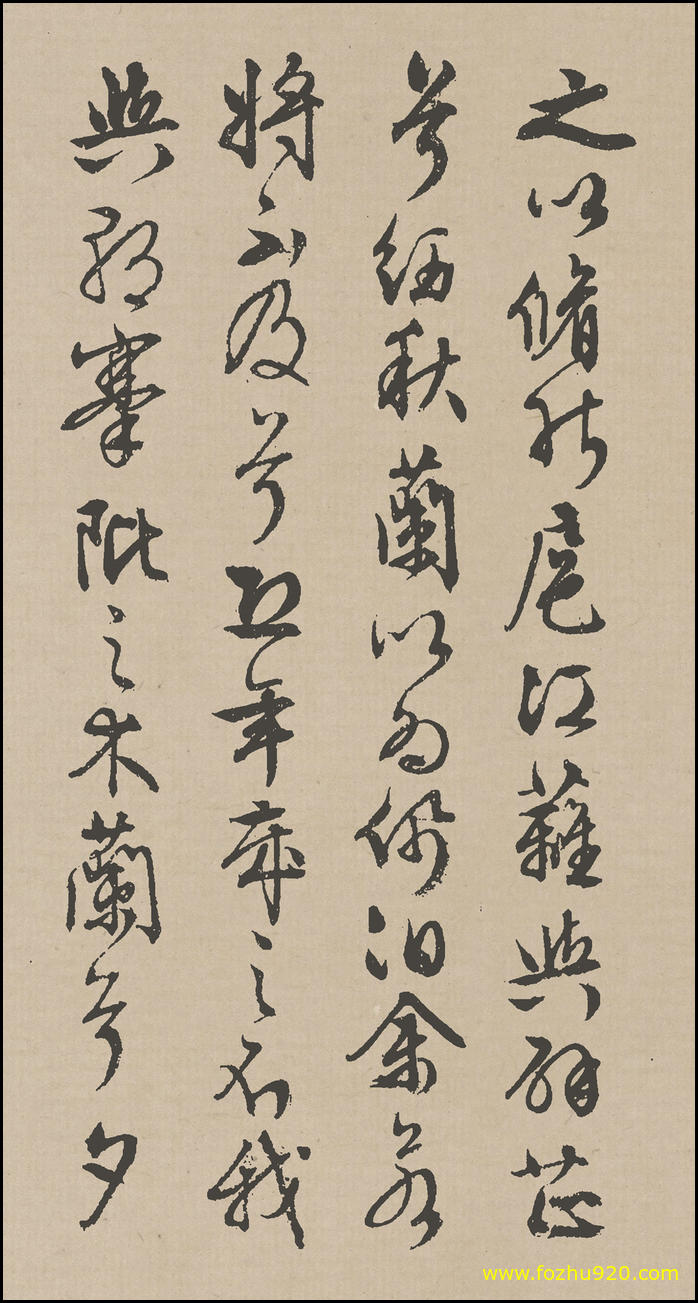 之以脩能扈江蘺與辟芷
兮紉秋蘭以為佩汩余若
將不及兮恐年歲之不我
與朝搴阰之木蘭兮夕
www.fozhu920.com